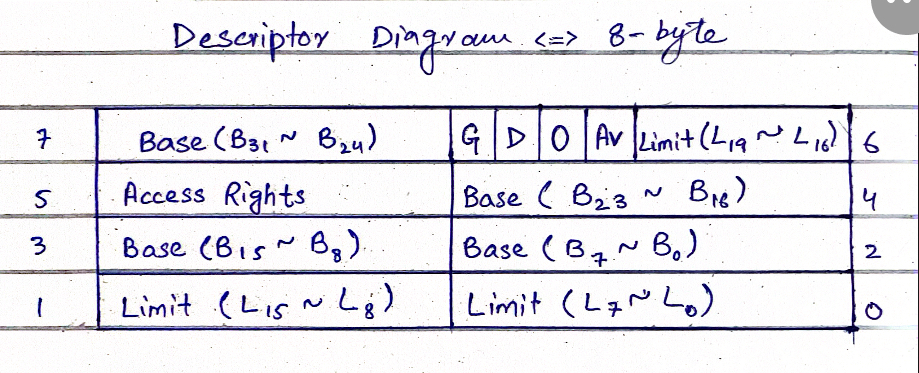 Descriptor Diagram <=> 8-byte
7 Base (B31 ~ B24) G D O Av Limit (L19 ~ L16) 6
5 Access Rights Base ( B23 ~ B16) 4
3 Base (B15 ~ B8) Base ( B7 ~ B0) 2
1 Limit (L15 ~ L8) Limit (L7 ~ L0) 0